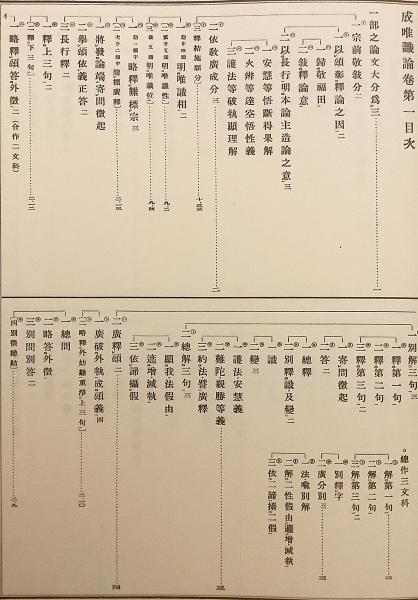 成唯識論卷第一目次
一部之論文大分爲三
一宗前敬敍分二
一以頌彰釋論之因二
一歸敬福田
二敍釋論意
二以長行明本論主造論之意三
一安慧等悟斷得果解
二火辨等達空悟性義
三護法等破執顯理解
二依教廣成分三
三釋結施願分
一明唯識相二
二明唯識性
三明唯識位
一略釋難標宗三
二廣釋
一將發論端寄問徵起
二擧頌依義正答二
三長行釋二
一釋上三句二
二釋下三句
一略釋頌答外徵二
別解三句三
一釋第一句
二釋第二句二
三釋第三句二
一寄問徵起
二答二
一總釋
二別釋識及變二
一識
二變三
一護法安慧義
二難陀親勝等義
三約法譬廣釋
二總解三句三
一顯我法假由
二遮增減執
三依諦攝假
二廣釋頌二
一廣破外執成頌義四
一總問
二略答外徵
三別問別答二
四別徵總結
總作三文科
一解第一句二
二解第二句二
三解第三句二
一別釋字
二廣分別三
一法喩別解
二解二性假由遍增減執
三依二諦攝二假